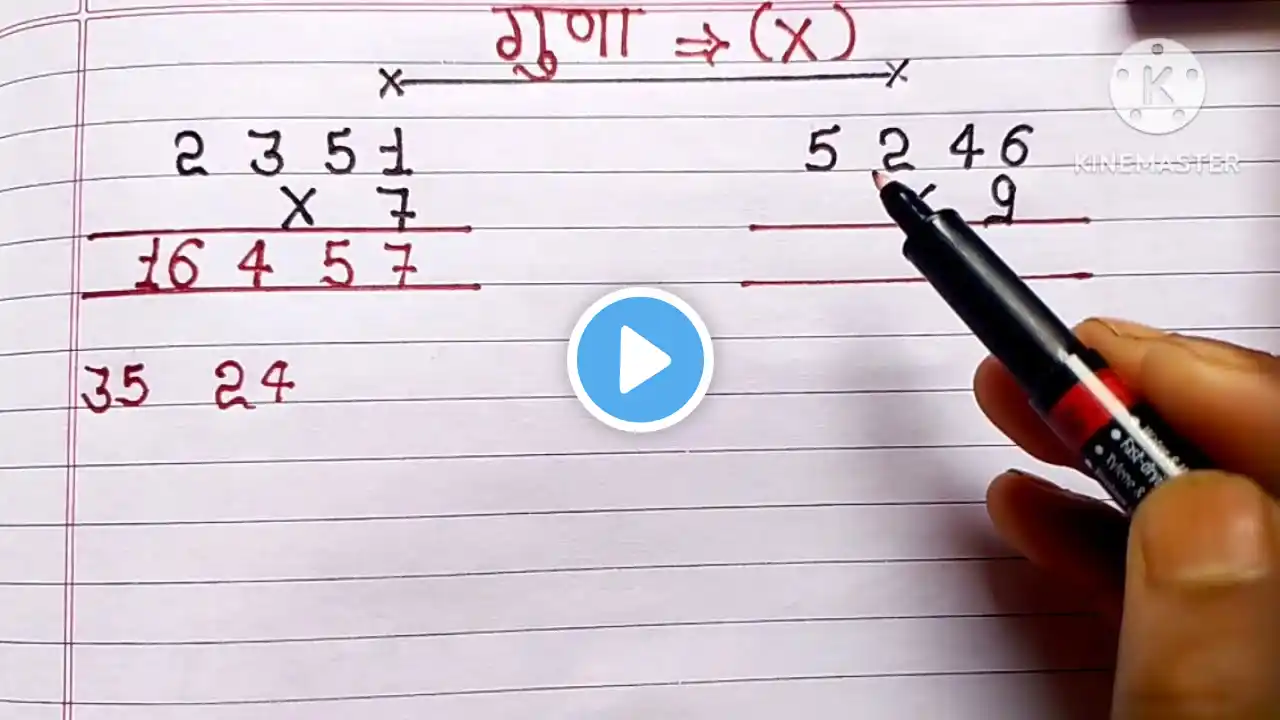 गुणा ⇒ (×)
K
KINEMASTER
2 3 5 1
× 7
16 4 5 7
35 24
5 2 4 6
× 9